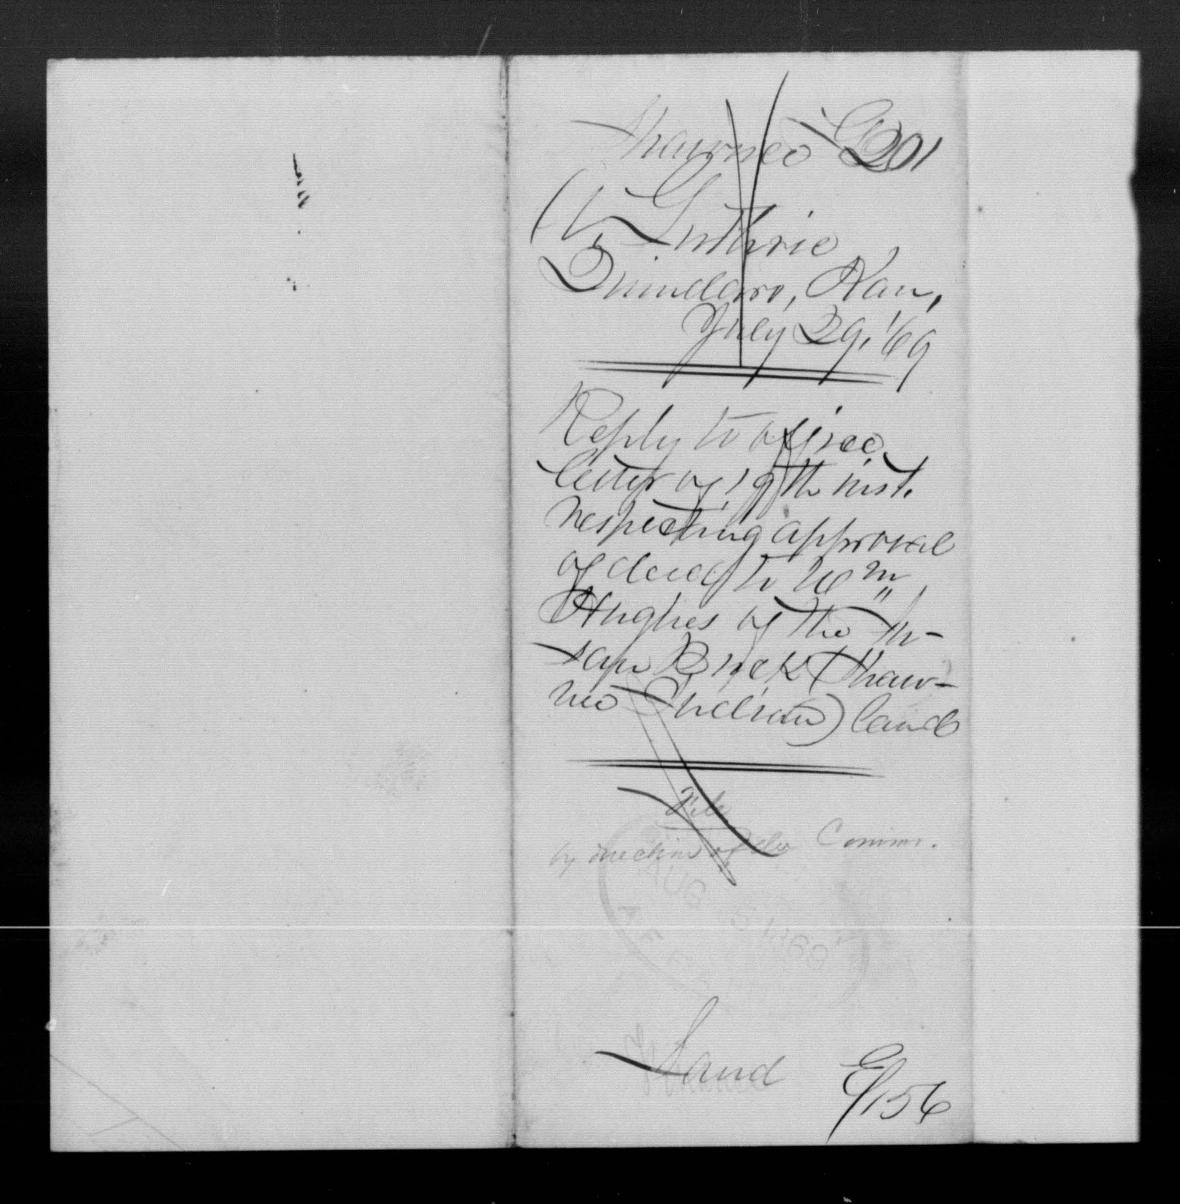 Shawnee G 201
A. Guthrie
Quindaro, Kan,
July 29, '69
Reply to office
letter of 19th inst.
respecting approval
of deed to Wm
Hughes of the Su-
san Buck (Shaw-
nee Indian) land
File
by direction of the Comm.
AUG 5 1869
Land
E/156